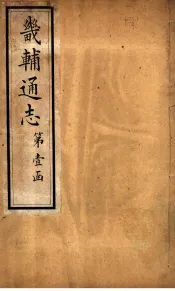 畿輔通志
第壹函